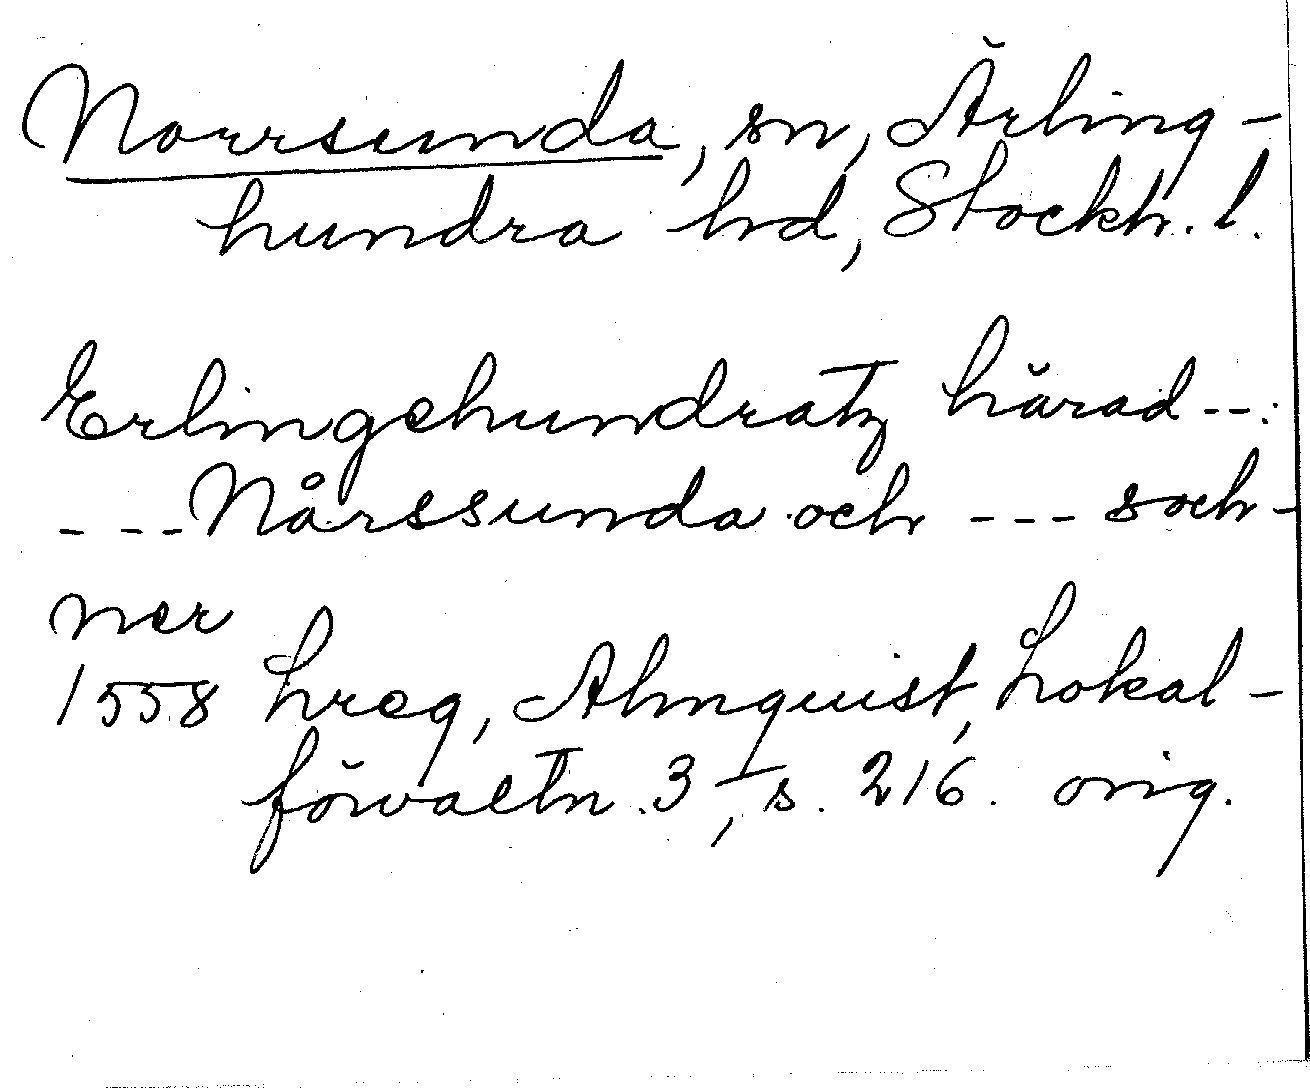 Norrsunda, sn, Ärling-
hundra hd, Stockh. l.
Erlingehundratz härad --:
- --Nårssunda och --- soch-
ner
1558 Lreg, Almquist, Lokal-
förvaltn. 3, s. 216. orig.